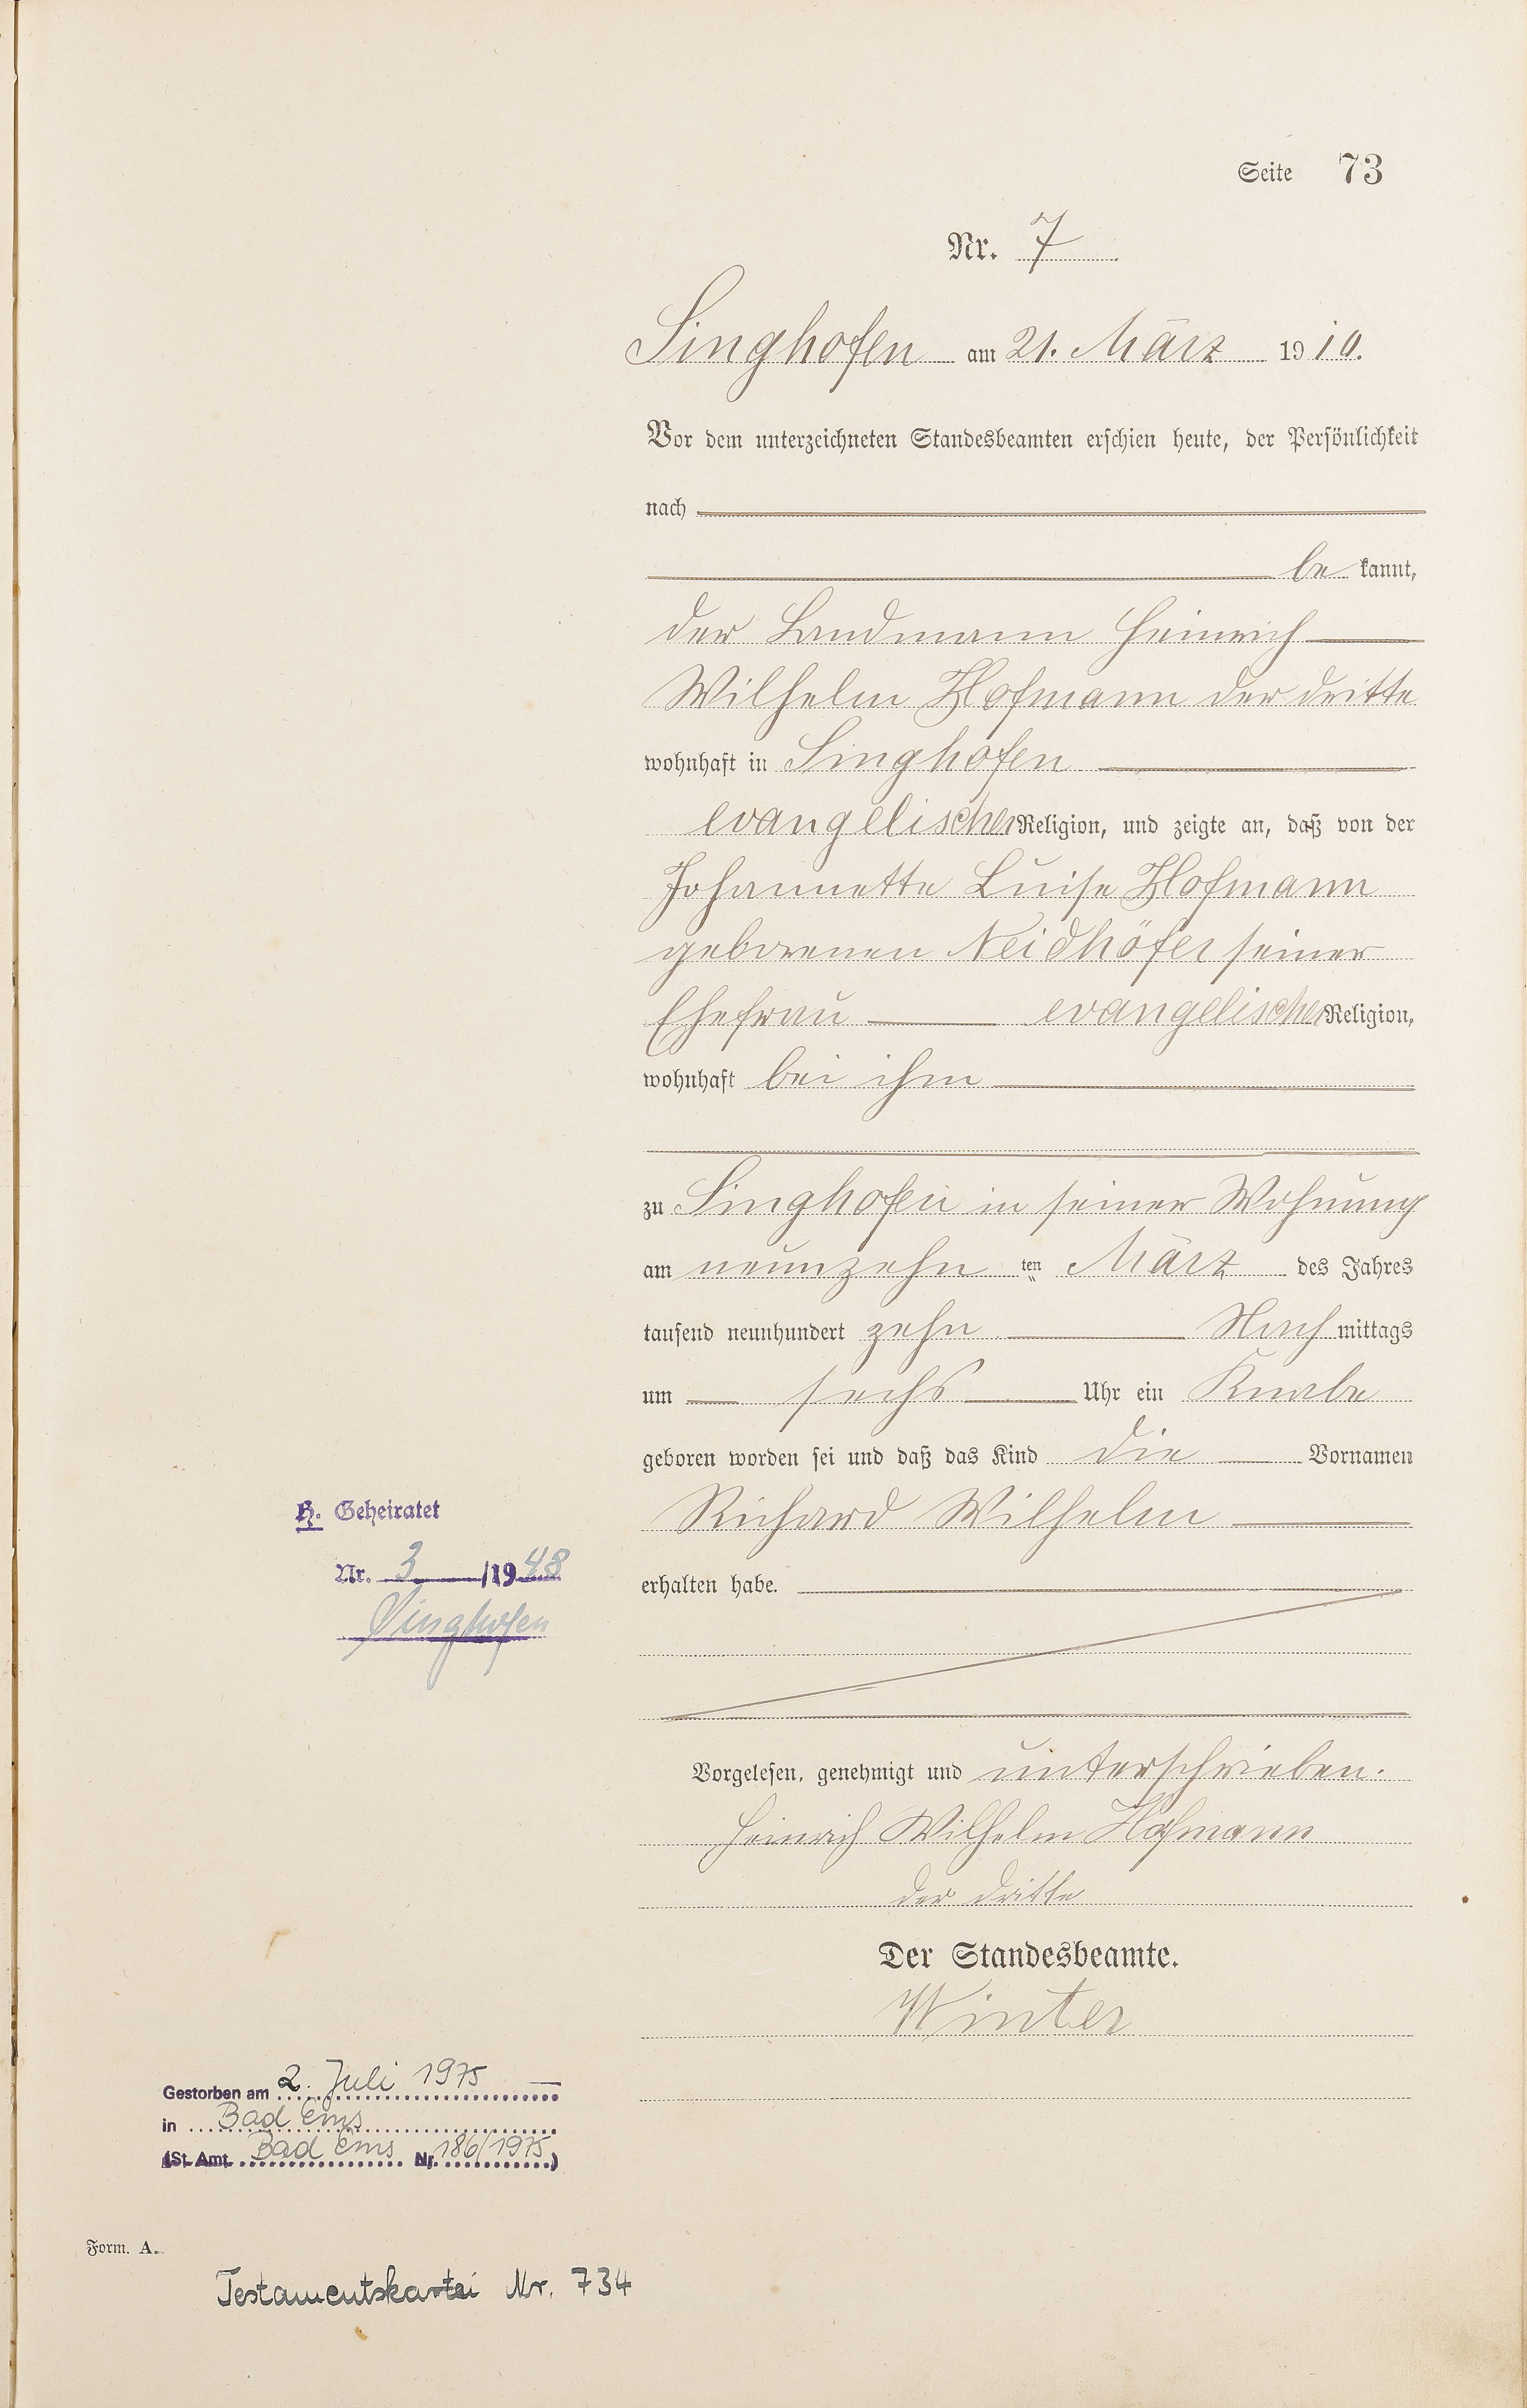 Seite 73
Nr. 7
Singhofen am 21. März 1910.
Vor dem unterzeichneten Standesbeamten erschien heute, der Persönlichkeit
nach
be kannt,
der Landmann Heinrich
Wilhelm Hofmann der dritte
wohnhaft in Singhofen
evangelischer Religion, und zeigte an, daß von der
Johannette Luise Hofmann
geborenen Neidhöfer seiner
Ehefrau evangelischer Religion,
wohnhaft bei ihm
zu Singhofen in seiner Wohnung
am neunzehn ten März des Jahres
tausend neunhundert zehn Nach mittags
um sechs Uhr ein Knabe
geboren worden sei und daß das Kind die Vornamen
Richard Wilhelm
erhalten habe.
H. Geheiratet
Nr. 3 /1948
Singhofen
Vorgelesen, genehmigt und unterschrieben.
Heinrich Wilhelm Hofmann
der dritte
Der Standesbeamte.
Winter
Gestorben am 2. Juli 1975
in Bad Ems
(St. Amt Bad Ems Nr. 186/1975)
Form. A.
Testamentskartei Nr. 734